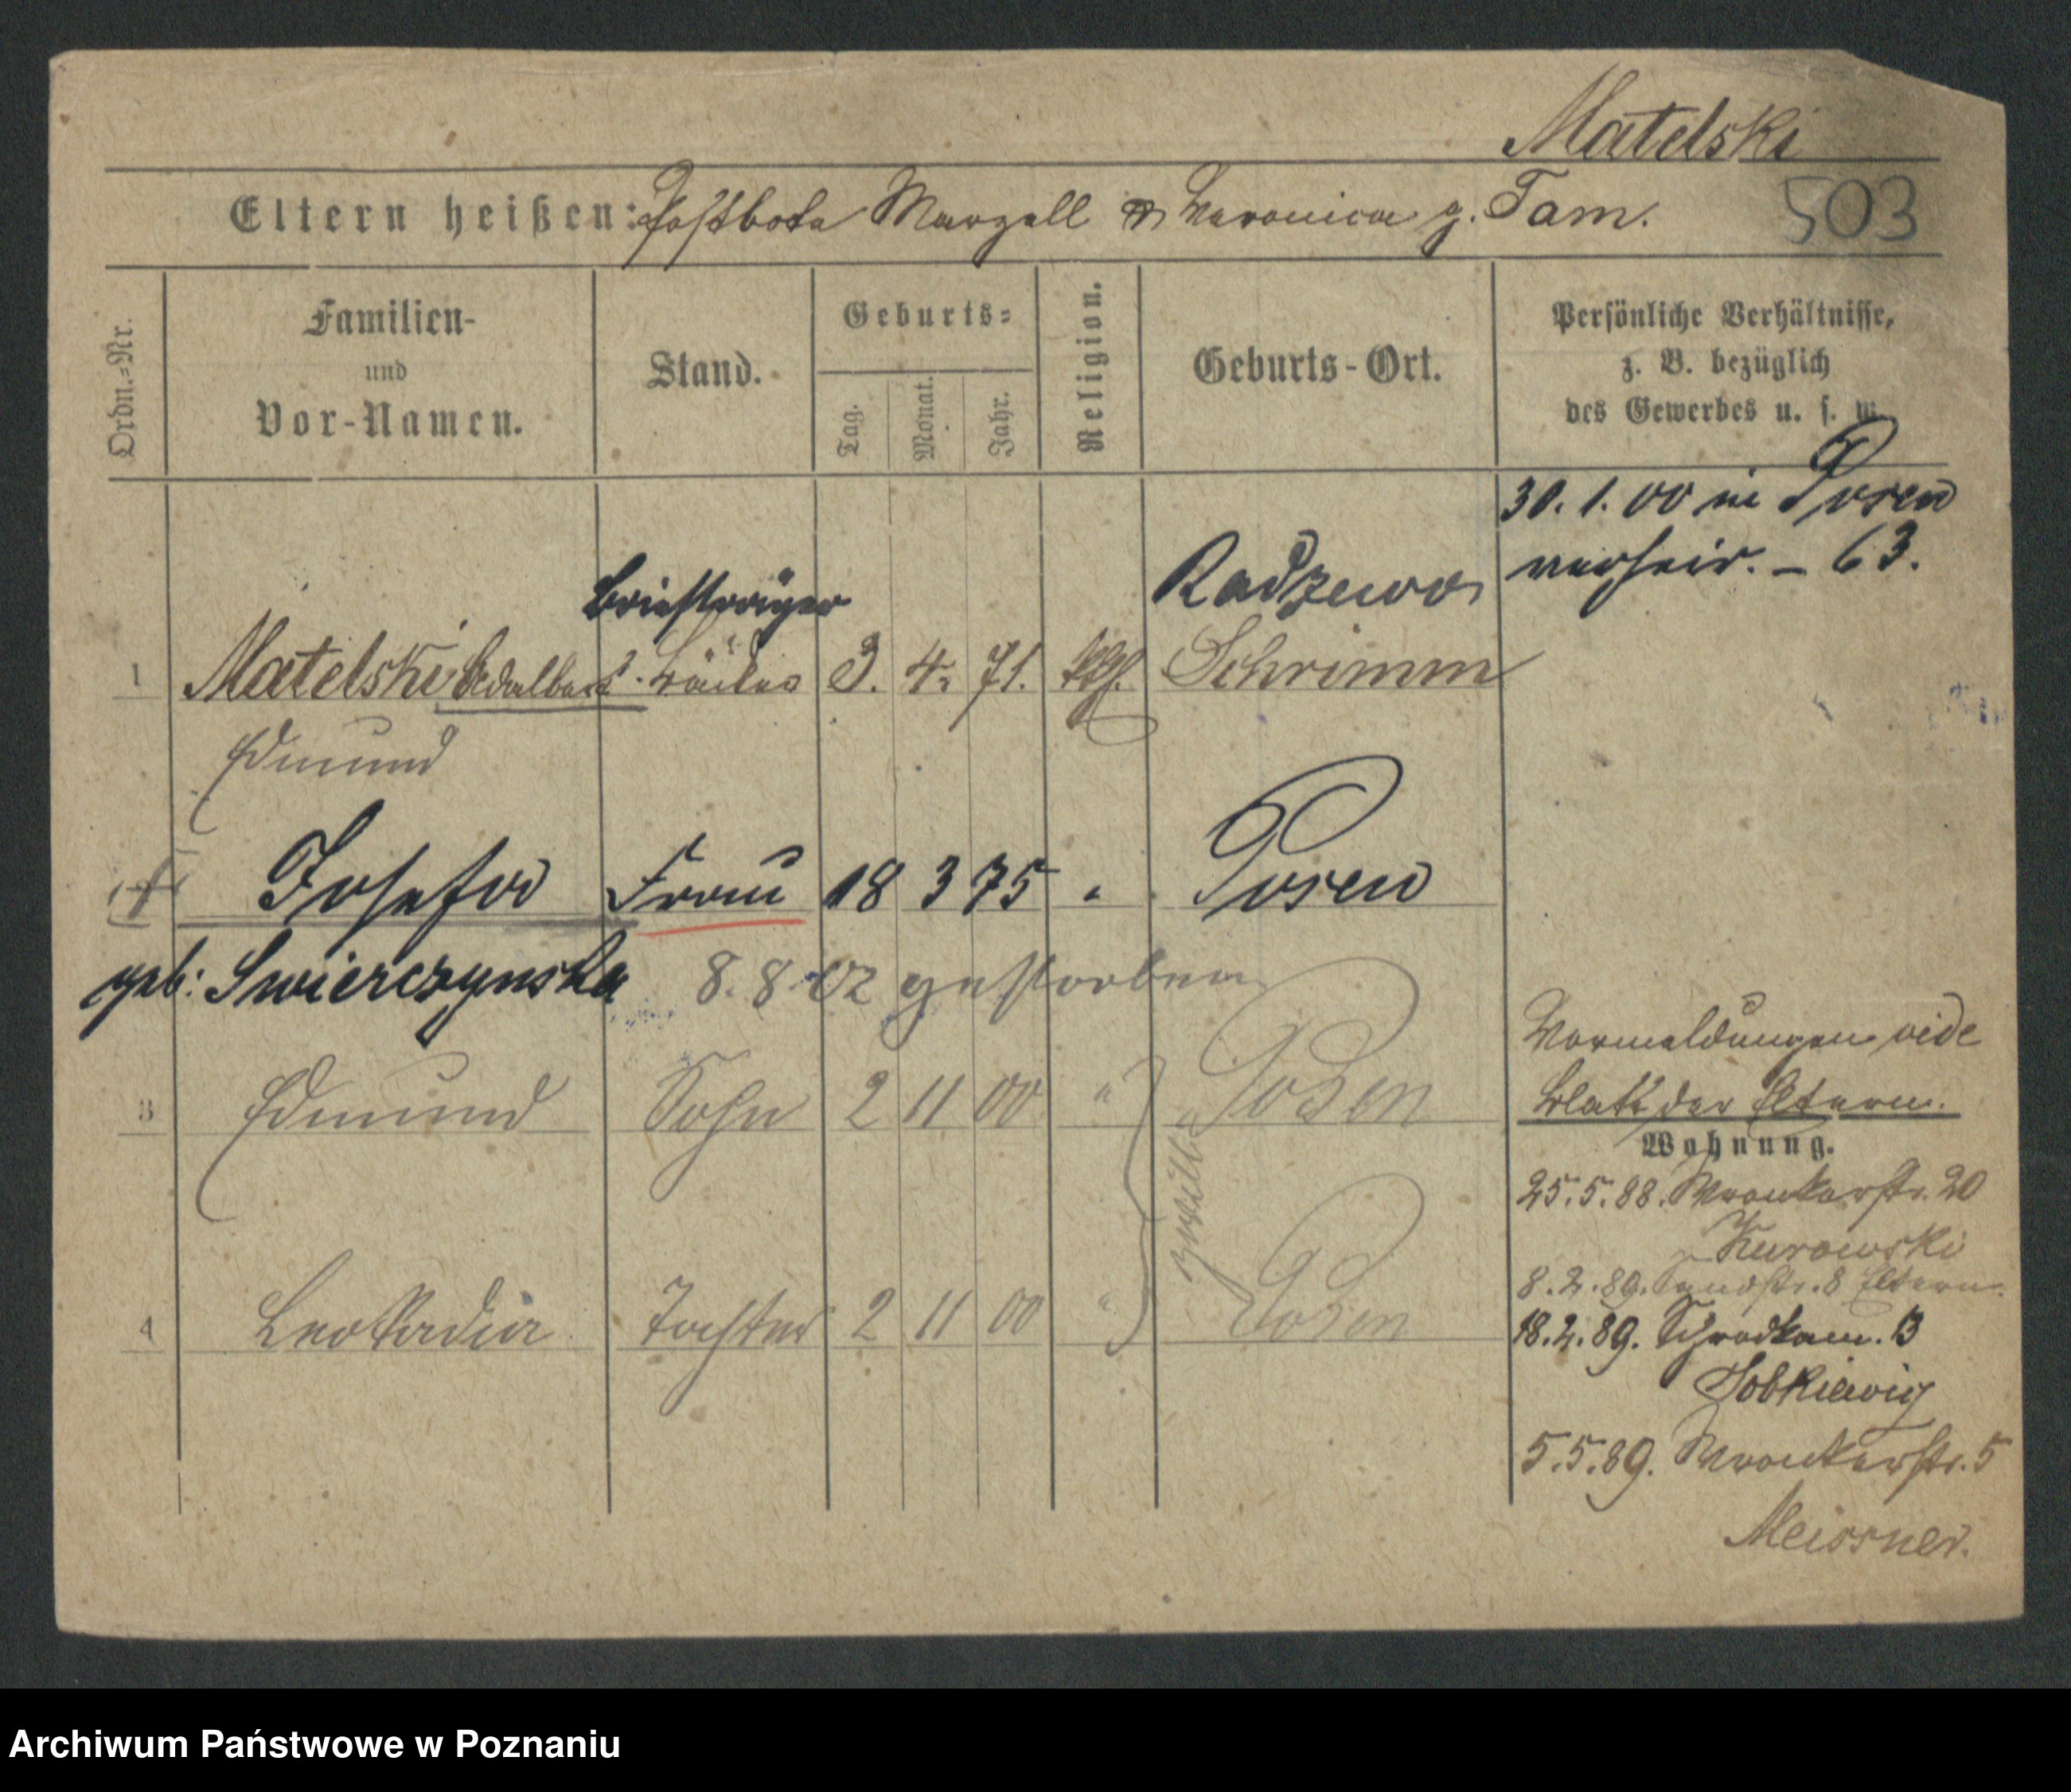 Matelski
Eltern heißen: Postbote Marzell u Veronica g. Tam.
503
Ordn.-Nr.
Familien-
und
Vor-Namen.
Stand.
Geburts-
Tag.
Monat.
Jahr.
Religion.
Geburts-Ort.
Persönliche Verhältnisse,
z. B. bezüglich
des Gewerbes u. s. w.
30. 1. 00 in Posen
verheir. – 63.
Briefträger
Radzewo
1 Matelski Adalbert 3. 4. 71. kth. Schrimm
Edmund
Josefa Frau 18 3 75 " Posen
geb: Swierczynska 8.8.02 gestorben
3 Edmund Sohn 2 11 00 " Posen
Zwill
4 Leokadia Tochter 2 11 00 " Posen
Vormeldungen vide
Blatt der Eltern.
Wohnung.
25.5.88. Wronkerstr. 20
Kurowski
8.2.89. Sandstr. 8 Eltern.
18.2.89. Schrodkam. 13
Sobkiewicz
5.5.89. Wronkerstr. 5
Meissner.
Archiwum Państwowe w Poznaniu